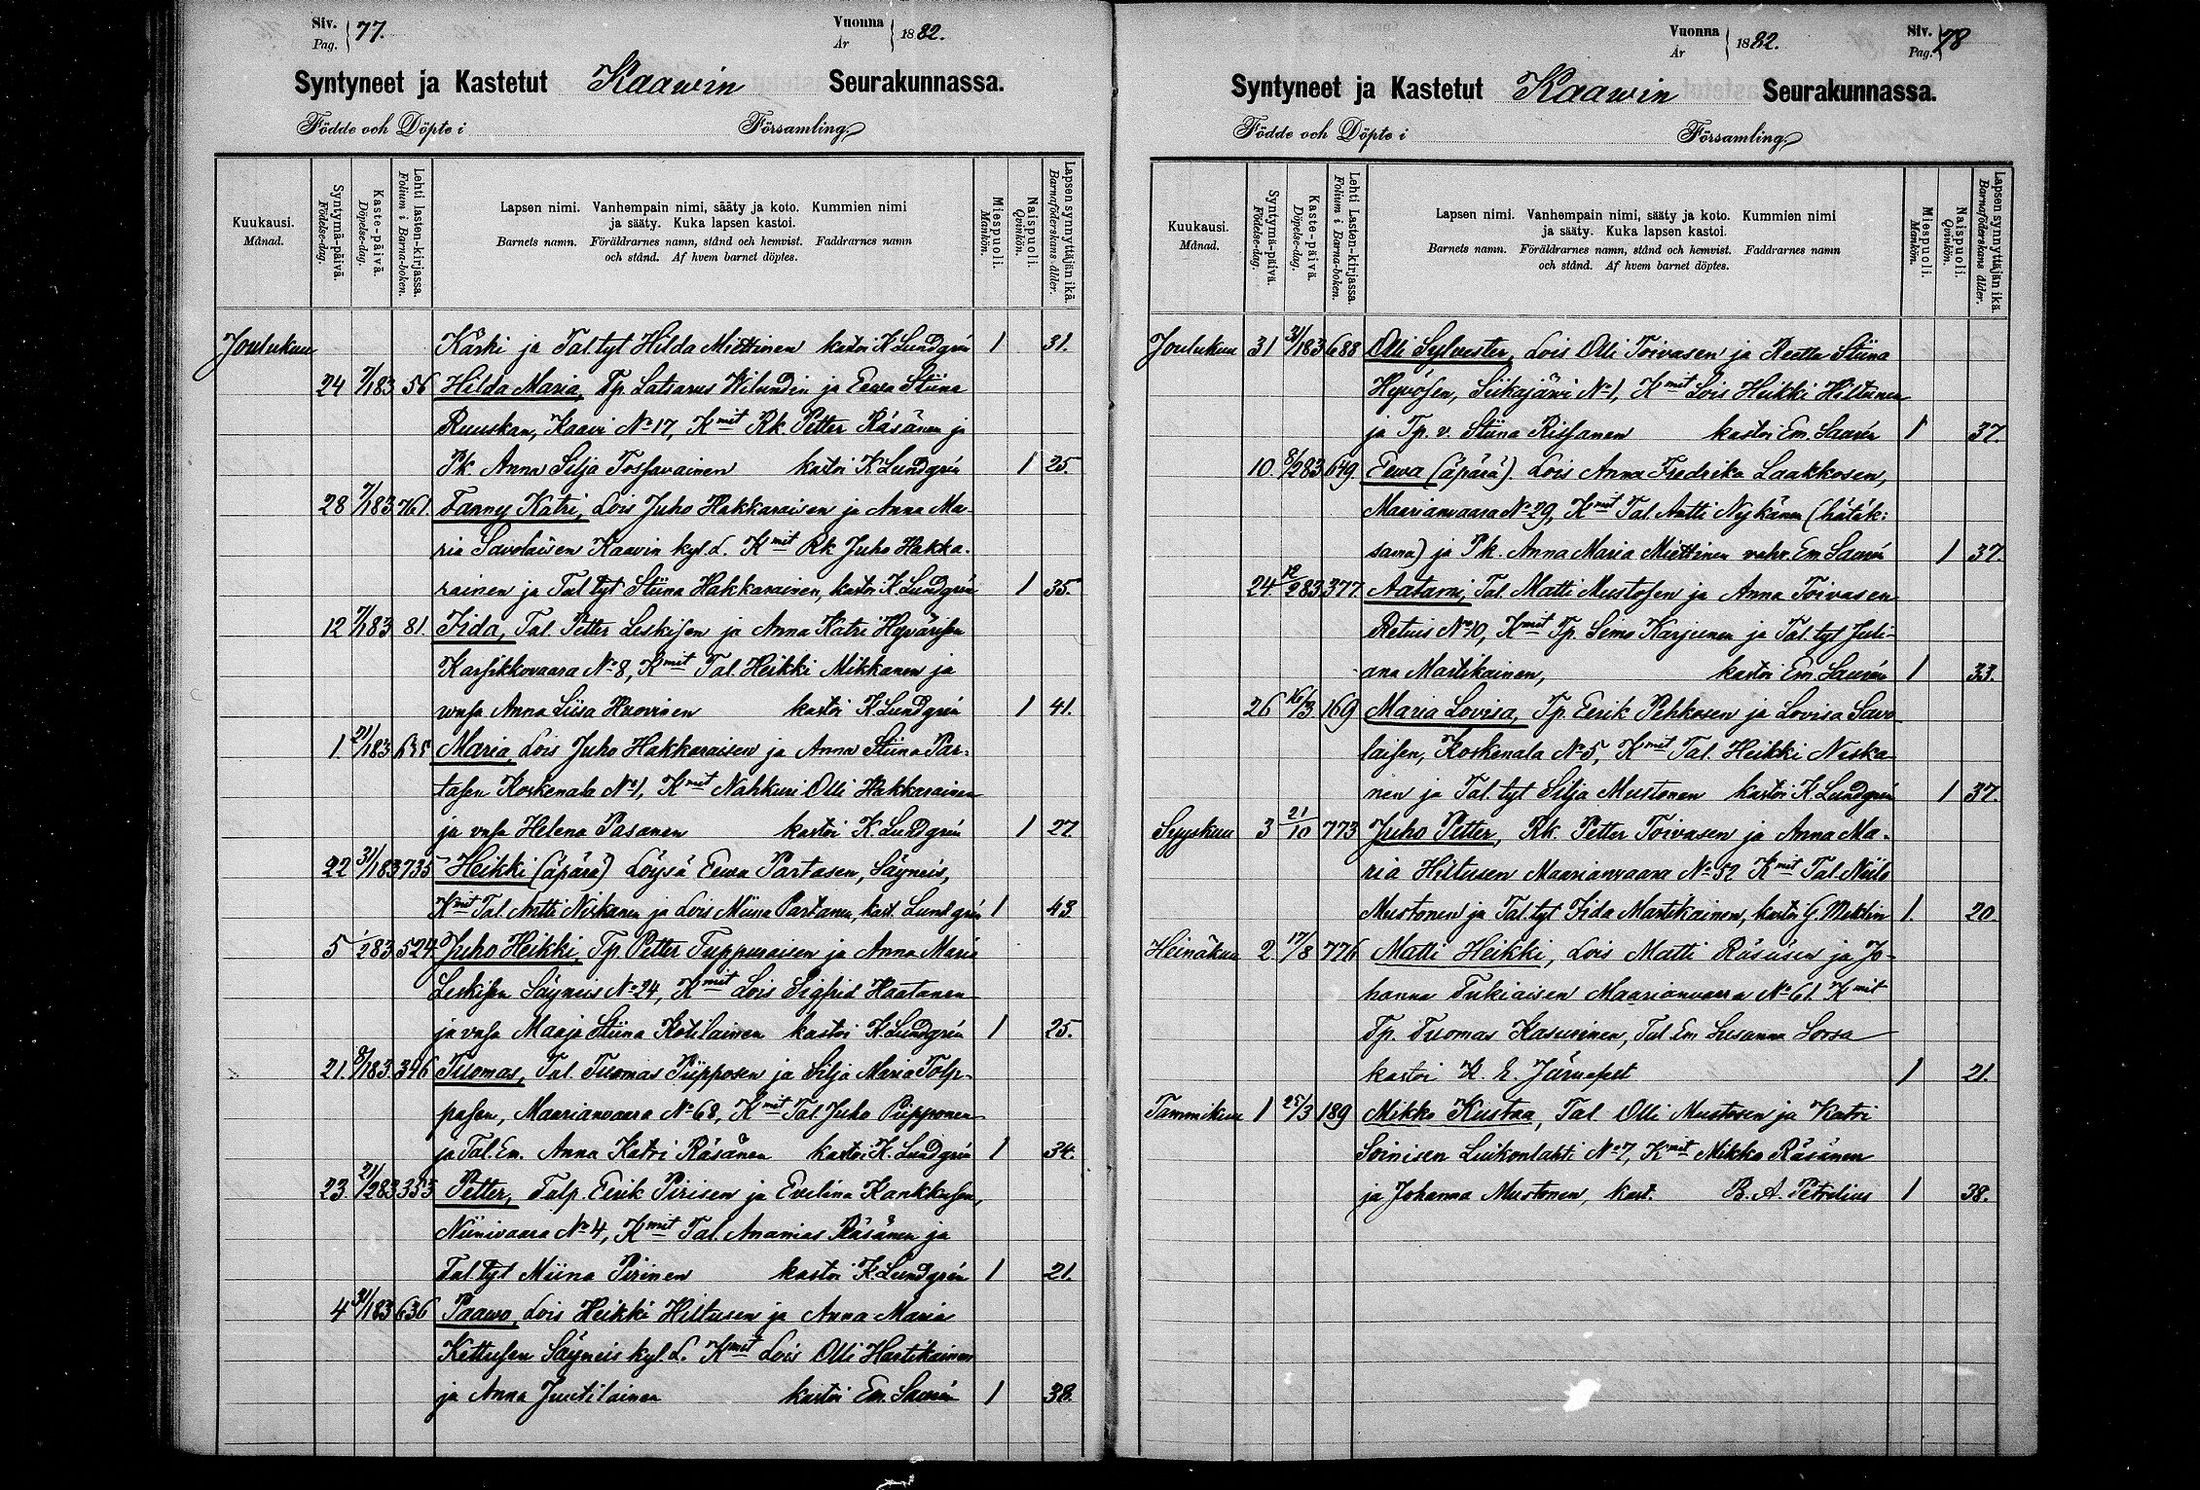 Siv. Pag. 77.
Vuonna År 1882.
Syntyneet ja Kastetut Kaawin Seurakunnassa.
Födde och Döpte i Församling.
Kuukausi. Månad.
Syntymä-päivä. Födelse-dag.
Kaste-päivä. Döpelse-dag.
Lehti lasten-kirjassa. Folium i Barna-boken.
Lapsen nimi. Vanhempain nimi, sääty ja koto. Kummien nimi
ja sääty. Kuka lapsen kastoi.
Barnets namn. Föräldrarnes namn, stånd och hemvist. Faddrarnes namn
och stånd. Af hvem barnet döptes.
Miespuoli. Mankön.
Naispuoli. Qvinkön.
Lapsen synnyttäjän ikä. Barnaföderskans ålder.
Joulukuu Käski ja Tal. tyt Hilda Miettinen kastoi K Lundgrén 1 31.
24 7/1 83 56 Hilda Maria, Tp. Latsarus Wilundin ja Eewa Stiina
Ruuskan, Kaavi No 17, Kmit Rk Petter Räsänen ja
Pk. Anna Silja Tossavainen kastoi K Lundgrén 1 25.
28 7/1 83 761. Fanny Katri, Lois Juho Hakkaraisen ja Anna Ma-
ria Savolaisen Kaavin kyl. L. Kmit Rk Juho Hakka-
rainen ja Tal. tyt Stiina Hakkarainen, kastoi K. Lundgrén 1 35.
12 7/1 83 81. Iida, Tal. Petter Leskisen ja Anna Katri Hyvärisen
Karsikkovaara No 8, Kmit Tal. Heikki Mikkanen ja
vmsa Anna Liisa Huovinen kastoi K. Lundgrén 1 41.
1. 21/1 83 635 Maria, Lois Juho Hakkaraisen ja Anna Stiina Par-
tasen Koskenala No 1, Kmit Nahkuri Olli Hakkarainen
ja vmsa Helena Pasanen kastoi K. Lundgrén 1 27
22 31/1 83 735 Heikki (äpärä) Löysä Eewa Partasen, Säyneis,
Kmit Tal. Antti Niskanen ja Lois Miina Partanen, kast. Lundgrén 1 43
5 /2 83 524. Juho Heikki, Tp. Petter Tuppuraisen ja Anna Maria
Leskisen Säyneis No 24, Kmit Lois Sigfrid Haatanen
ja vmsa Maaja Stiina Kotilainen kastoi K. Lundgrén 1 25.
21. 8/1 83. 396 Tuomas, Tal. Tuomas Piipposen ja Silja Maria Tolp-
pasen, Maarianvaara No 68, Kmit Tal. Juho Piipponen
ja Tal. Em. Anna Katri Räsänen kastoi K. Lundgrén 1 34.
23. 21/2 83 353 Petter, Talp. Eerik Pirisen ja Evelina Kankkusen,
Niinivaara No 4, Kmit Tal. Ananias Räsänen ja
Tal. tyt Miina Pirinen kastoi K. Lundgrén 1 21.
4 31/1 83 636 Paawo, Lois Heikki Hiltusen ja Anna Maria
Kettusen Säyneis kyl. L. Kmit Lois Olli Hartikainen
ja Anna Juutilainen kastoi Em. Saurén 1 38.
Vuonna År 1882.
Siv. Pag. 78
Syntyneet ja Kastetut Kaawin Seurakunnassa.
Födde och Döpte i Församling.
Kuukausi. Månad.
Syntymä-päivä. Födelse-dag.
Kaste-päivä. Döpelse-dag.
Lehti Lasten-kirjassa. Folium i Barna-boken.
Lapsen nimi. Vanhempain nimi, sääty ja koto. Kummien nimi
ja sääty. Kuka lapsen kastoi.
Barnets namn. Föräldrarnes namn, stånd och hemvist. Faddrarnes namn
och stånd. Af hvem barnet döptes.
Miespuoli. Mankön.
Naispuoli. Qvinkön.
Lapsen synnyttäjän ikä. Barnaföderskans ålder.
Joulukuu 31 31/1 83 688 Olli Sylvester, Lois Olli Toivasen ja Reetta Stiina
Hyvösen, Siikajärvi No 1, Kmit Lois Heikki Hiltunen
ja Tp. v. Stiina Rissanen kastoi Em. Saurén 1 37.
10. 8/2 83 649. Eewa (äpärä). Lois Anna Fredrika Laakkosen,
Maarianvaara No 29, Kmit Tal. Antti Nykänen (hätäk:
saava) ja Pk. Anna Maria Miettinen vahv. Em. Saurén 1 37.
24. 12/2 83 377 Aatami, Tal. Matti Mustosen ja Anna Toivasen
Retuis No 10, Kmit Tp. Simo Karjunen ja Tal. tyt Juli-
ana Martikainen, kastoi Em. Saurén 1 33.
26 16/3 169 Maria Lovisa, Tp. Eerik Pehkosen ja Lovisa Savo
laisen, Koskenala No 5, Kmit Tal. Heikki Niska
nen ja Tal. tyt Silja Mustonen kastoi K. Lundgrén 1 37.
Syyskuu 3 21/10 773 Juho Petter, Rk. Petter Toivasen ja Anna Ma-
ria Hiltusen Maarianvaara No 52 Kmit Tal. Niilo
Mustonen ja Tal. tyt Iida Martikainen, kastoi G. Mektin 1. 20
Heinäkuu 2. 17/8 776 Matti Heikki, Lois Matti Räsäsen ja Jo-
hanna Tukiaisen Maarianvaara No 61. Kmit
Tp. Tuomas Kasurinen, Tal. Em Susanna Sorsa
kastoi K. E. Järnefelt 1 21.
Tammikuu 1 25/3 189 Mikko Kustaa, Tal. Olli Mustosen ja Katri
Soinisen Luikonlahti No 7, Kmit Mikko Räsänen
ja Johanna Mustonen, kast. B. A. Petrelius 1 38.